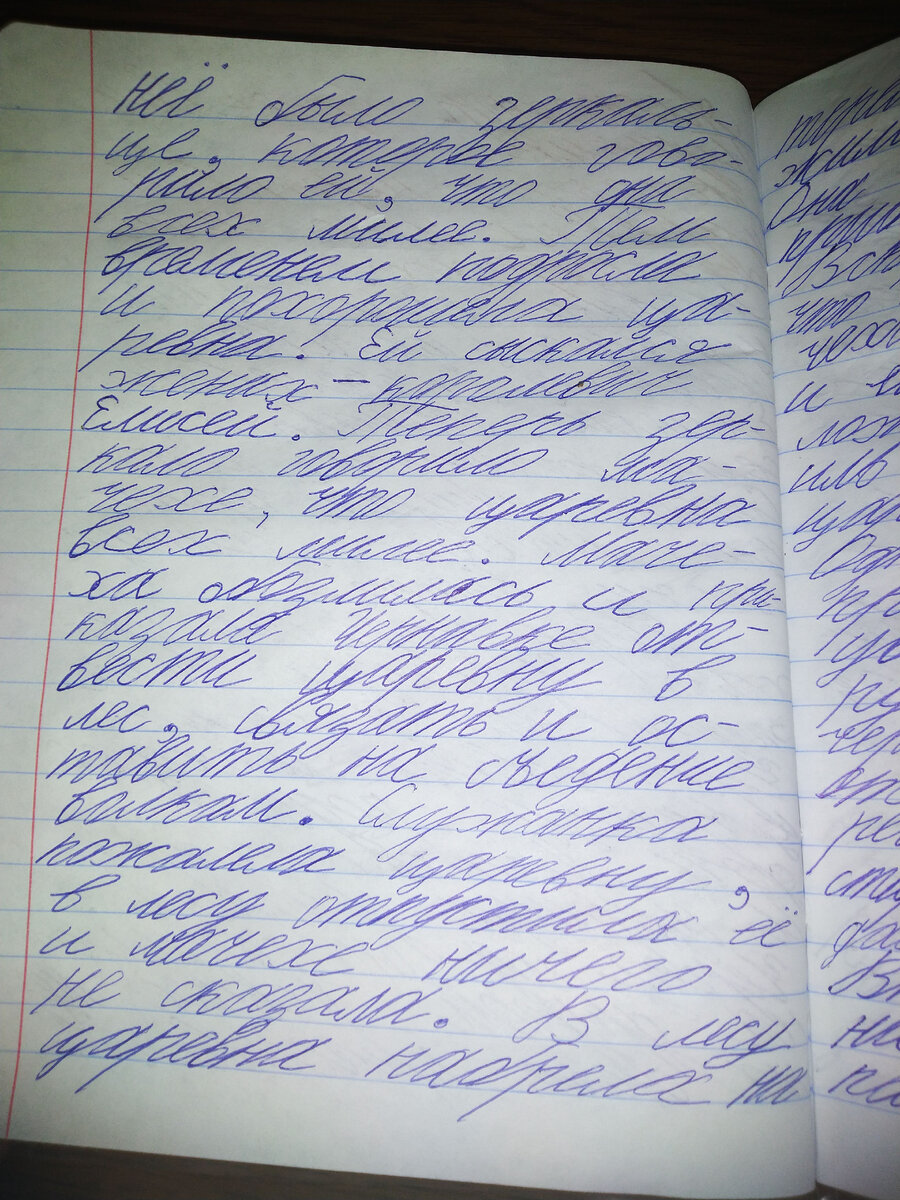 неё было зеркаль-
це, которое гово-
рило ей, что она
всех милее. Тем
временем подросла
и похорошела ца-
ревна. Ей сыскался
жених – королевич
Елисей. Теперь зер-
кало говорило ма-
чехе, что царевна
всех милее. Маче-
ха обозлилась и при-
казала Чернавке от-
вести царевну в
лес, связать и ос-
тавить на съедение
волкам. Служанка
пожалела царевну,
в лесу отпустила её
и мачехе ничего
не сказала. В лесу
царевна набрела на
жила
Она
что
чеха
и